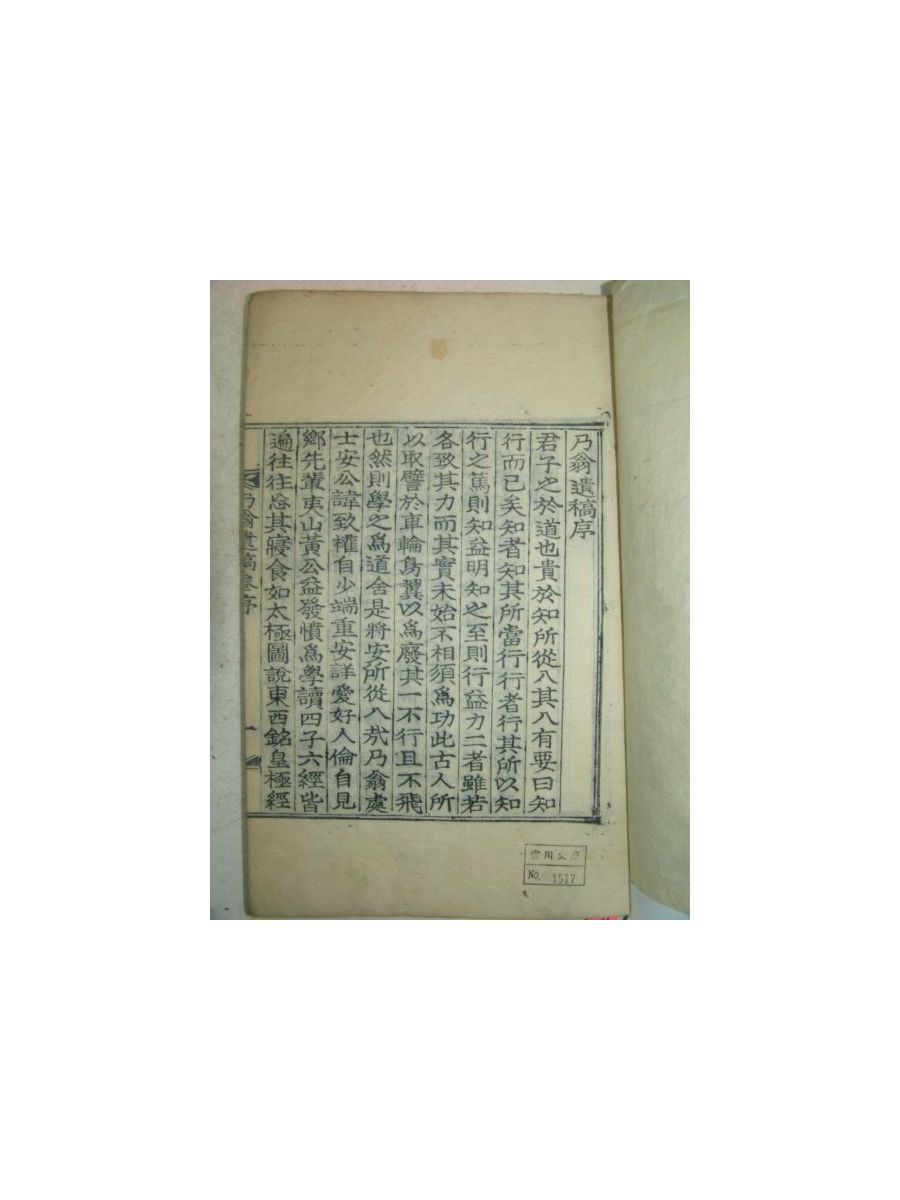 乃翁遺稿序
君子之於道也貴於知所從入其入有要曰知
行而已矣知者知其所當行行者行其所以知
行之篤則知益明知之至則行益力二者雖若
各致其力而其實未始不相須爲功此古人所
以取譬於車輪鳥翼以爲廢其一不行且不飛
也然則學之爲道舍是將安所從入㢤乃翁處
士安公諱致權自少端重安詳愛好人倫自見
鄉先輩夷山黃公益發憤爲學讀四子六經皆
遍往往忘其寢食如太極圖說東西銘皇極經
乃翁遺稿卷序
一
No. 1517